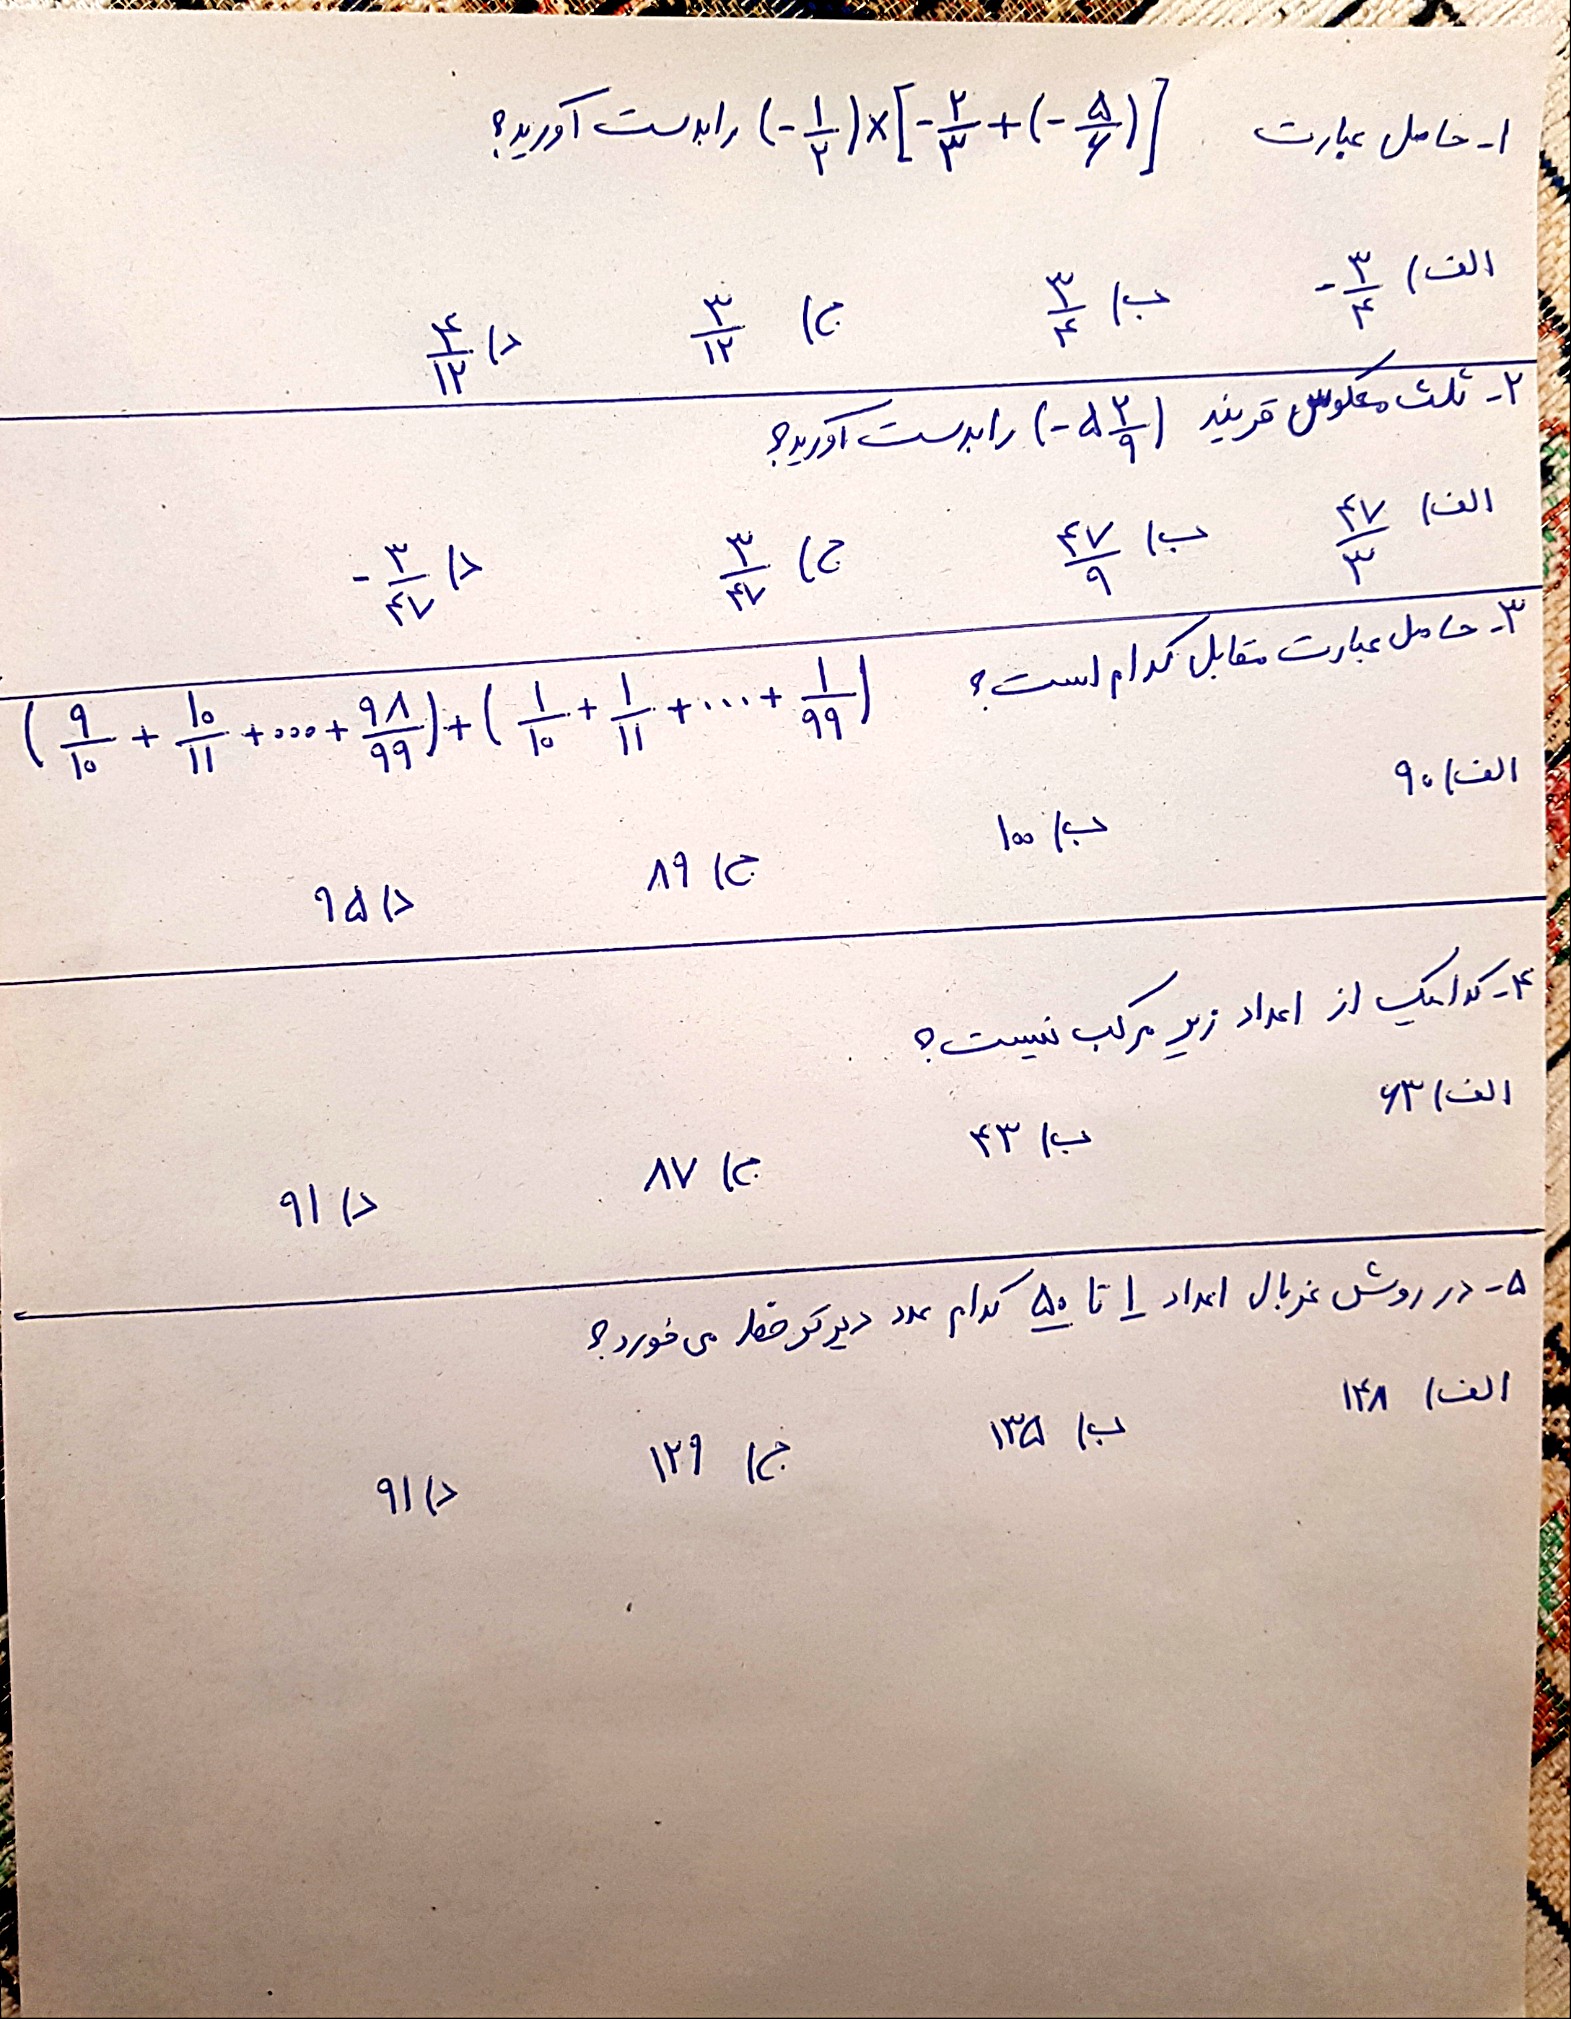 ۱- حاصل عبارت (-۱/۲)×[-۲/۳+(-۵/۶)] را بدست آورید؟
الف) -۳/۴ ب) ۳/۴ ج) ۳/۱۲ د) ۴/۱۲
۲- ثلث معکوس قرینه (-۵ ۲/۹) را بدست آورید؟
الف) ۴۷/۳ ب) ۴۷/۹ ج) ۳/۴۷ د) -۳/۴۷
۳- حاصل عبارت مقابل کدام است؟
(۹/۱۰ + ۱۰/۱۱ + ... + ۹۸/۹۹) + (۱/۱۰ + ۱/۱۱ + ... + ۱/۹۹)
الف) ۹۰ ب) ۱۰۰ ج) ۸۹ د) ۹۵
۴- کدامیک از اعداد زیر مرکب نیست؟
الف) ۶۳ ب) ۴۳ ج) ۸۷ د) ۹۱
۵- در روش غربال اعداد ۱ تا ۵۰ کدام عدد دیرتر خط می‌خورد؟
الف) ۱۴۸ ب) ۱۳۵ ج) ۱۲۹ د) ۹۱